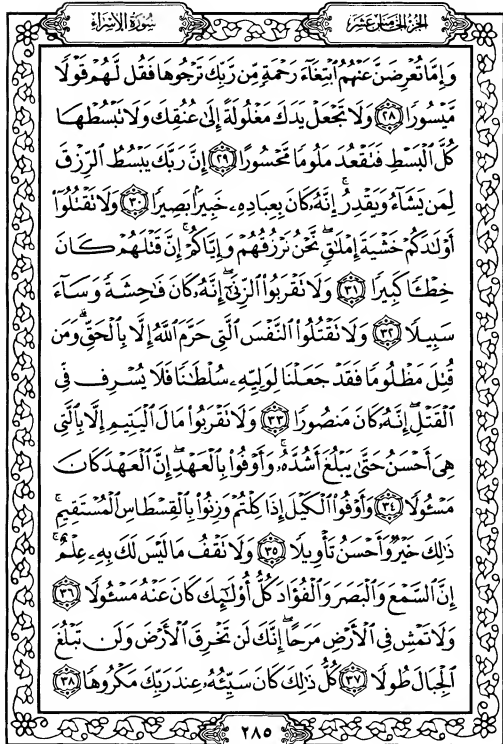 سُورَةُ الْإِسْرَاءِ
الجُزْءُ الْخَامِسَ عَشَرَ
وَإِمَّا تُعْرِضَنَّ عَنْهُمُ ابْتِغَاءَ رَحْمَةٍ مِّن رَّبِّكَ تَرْجُوهَا فَقُل لَّهُمْ قَوْلًا
مَّيْسُورًا ٢٨ وَلَا تَجْعَلْ يَدَكَ مَغْلُولَةً إِلَىٰ عُنُقِكَ وَلَا تَبْسُطْهَا
كُلَّ الْبَسْطِ فَتَقْعُدَ مَلُومًا مَّحْسُورًا ٢٩ إِنَّ رَبَّكَ يَبْسُطُ الرِّزْقَ
لِمَن يَشَاءُ وَيَقْدِرُ ۚ إِنَّهُ كَانَ بِعِبَادِهِ خَبِيرًا بَصِيرًا ٣٠ وَلَا تَقْتُلُوا
أَوْلَٰدَكُمْ خَشْيَةَ إِمْلَٰقٍ ۖ نَّحْنُ نَرْزُقُهُمْ وَإِيَّاكُمْ ۚ إِنَّ قَتْلَهُمْ كَانَ
خِطْـًٔا كَبِيرًا ٣١ وَلَا تَقْرَبُوا الزِّنَىٰ ۖ إِنَّهُ كَانَ فَٰحِشَةً وَسَاءَ
سَبِيلًا ٣٢ وَلَا تَقْتُلُوا النَّفْسَ الَّتِي حَرَّمَ اللَّهُ إِلَّا بِالْحَقِّ ۗ وَمَن
قُتِلَ مَظْلُومًا فَقَدْ جَعَلْنَا لِوَلِيِّهِ سُلْطَٰنًا فَلَا يُسْرِف فِّي
الْقَتْلِ ۖ إِنَّهُ كَانَ مَنصُورًا ٣٣ وَلَا تَقْرَبُوا مَالَ الْيَتِيمِ إِلَّا بِالَّتِي
هِيَ أَحْسَنُ حَتَّىٰ يَبْلُغَ أَشُدَّهُ ۚ وَأَوْفُوا بِالْعَهْدِ ۖ إِنَّ الْعَهْدَ كَانَ
مَسْـُٔولًا ٣٤ وَأَوْفُوا الْكَيْلَ إِذَا كِلْتُمْ وَزِنُوا بِالْقِسْطَاسِ الْمُسْتَقِيمِ ۚ
ذَٰلِكَ خَيْرٌ وَأَحْسَنُ تَأْوِيلًا ٣٥ وَلَا تَقْفُ مَا لَيْسَ لَكَ بِهِ عِلْمٌ ۚ
إِنَّ السَّمْعَ وَالْبَصَرَ وَالْفُؤَادَ كُلُّ أُولَٰئِكَ كَانَ عَنْهُ مَسْـُٔولًا ٣٦
وَلَا تَمْشِ فِي الْأَرْضِ مَرَحًا ۖ إِنَّكَ لَن تَخْرِقَ الْأَرْضَ وَلَن تَبْلُغَ
الْجِبَالَ طُولًا ٣٧ كُلُّ ذَٰلِكَ كَانَ سَيِّئُهُ عِندَ رَبِّكَ مَكْرُوهًا ٣٨
٢٨٥